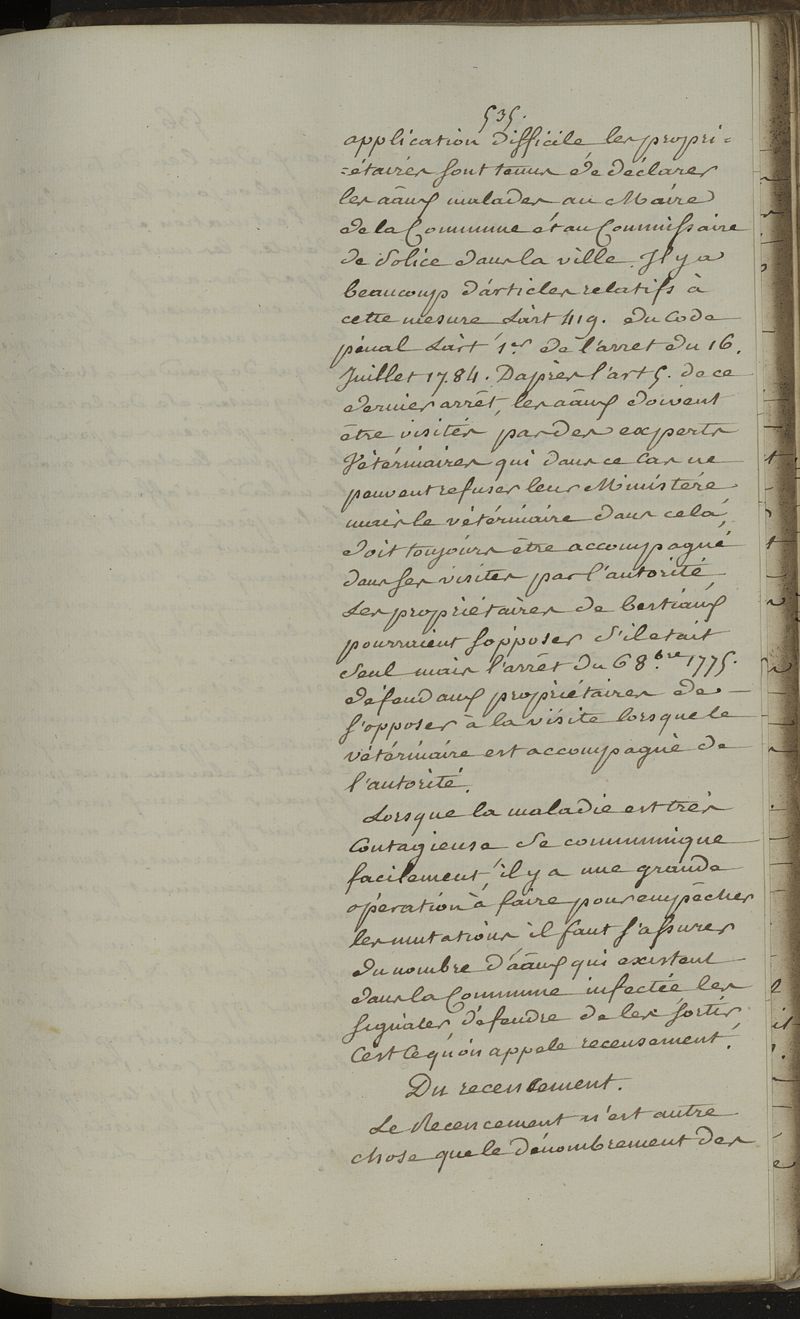 535.
application difficile les propri=
=étaires sont tenus de déclarer
les aâux malades au Maire
de la Commune et au Commissaire
de Police dans la ville. Il y a
beaucoup d'articles relatifs à
cette mesure L'art 419. du Code
pénal L'art 1er de l'arret du 16.
Juillet 1784. D'après l'art 5. de ce
dernier arrêt, les aâux doivent
être visités par des experts
Vétérinaires qui dans ce cas ne
peuvent refuser leur Ministère
mais le vétérinaire dans cela,
doit toujours être accompagné
dans ses visites par l'autorité
Les propriétaires de bestiaux
pourraient s'opposer s'il etait
seul mais l'arrêt du 6 8.bre 1775.
défend aux propriétaires de
s'opposer à la visite lorsque le
vétérinaire est accompagné de
l'autorité.
Lorsque la maladie est très
Contagieuse se communique
facilement, il y a une grande
opération à faire pour empêcher
les mutations, il faut s'assurer
du nombre d'aâux qui existent
dans la Commune infectée les
signaler défendre de les sortir
C'est ce qu'on appele recensement.
Du recensement.
Le Recencement n'est autre
chose que le dénombrement des